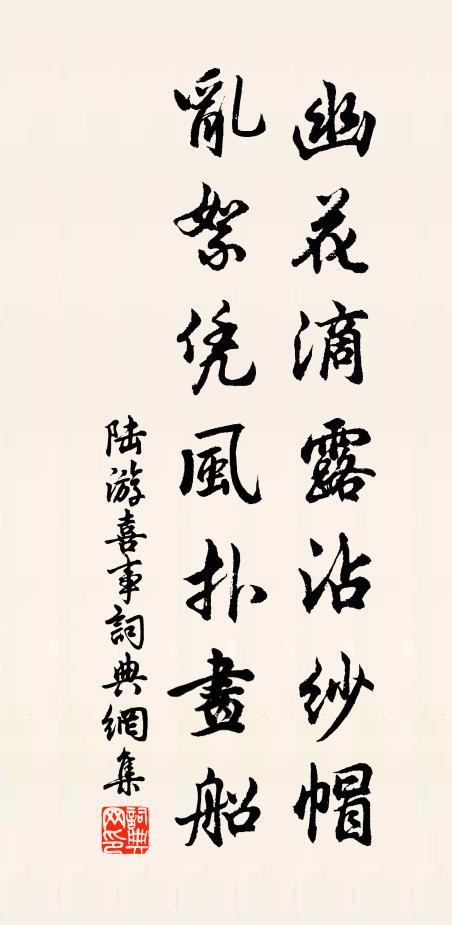 幽花滴露沾紗帽
亂絮凭風扑畫船
陆游喜事詞典網集
詞典網印